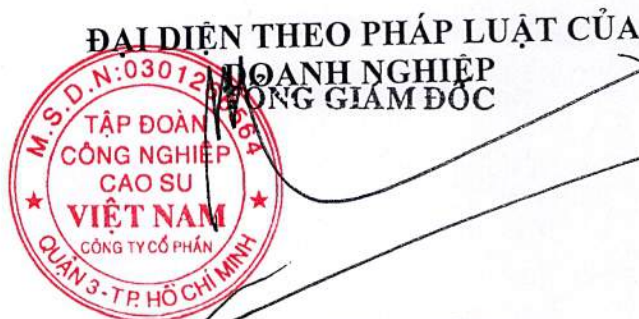 ĐẠI DIỆN THEO PHÁP LUẬT CỦA
DOANH NGHIỆP
TỔNG GIÁM ĐỐC
TẬP ĐOÀN
CÔNG NGHIỆP
CAO SU
VIỆT NAM
CÔNG TY CỔ PHẦN
QUẬN 3-T.P. HỒ CHÍ MINH